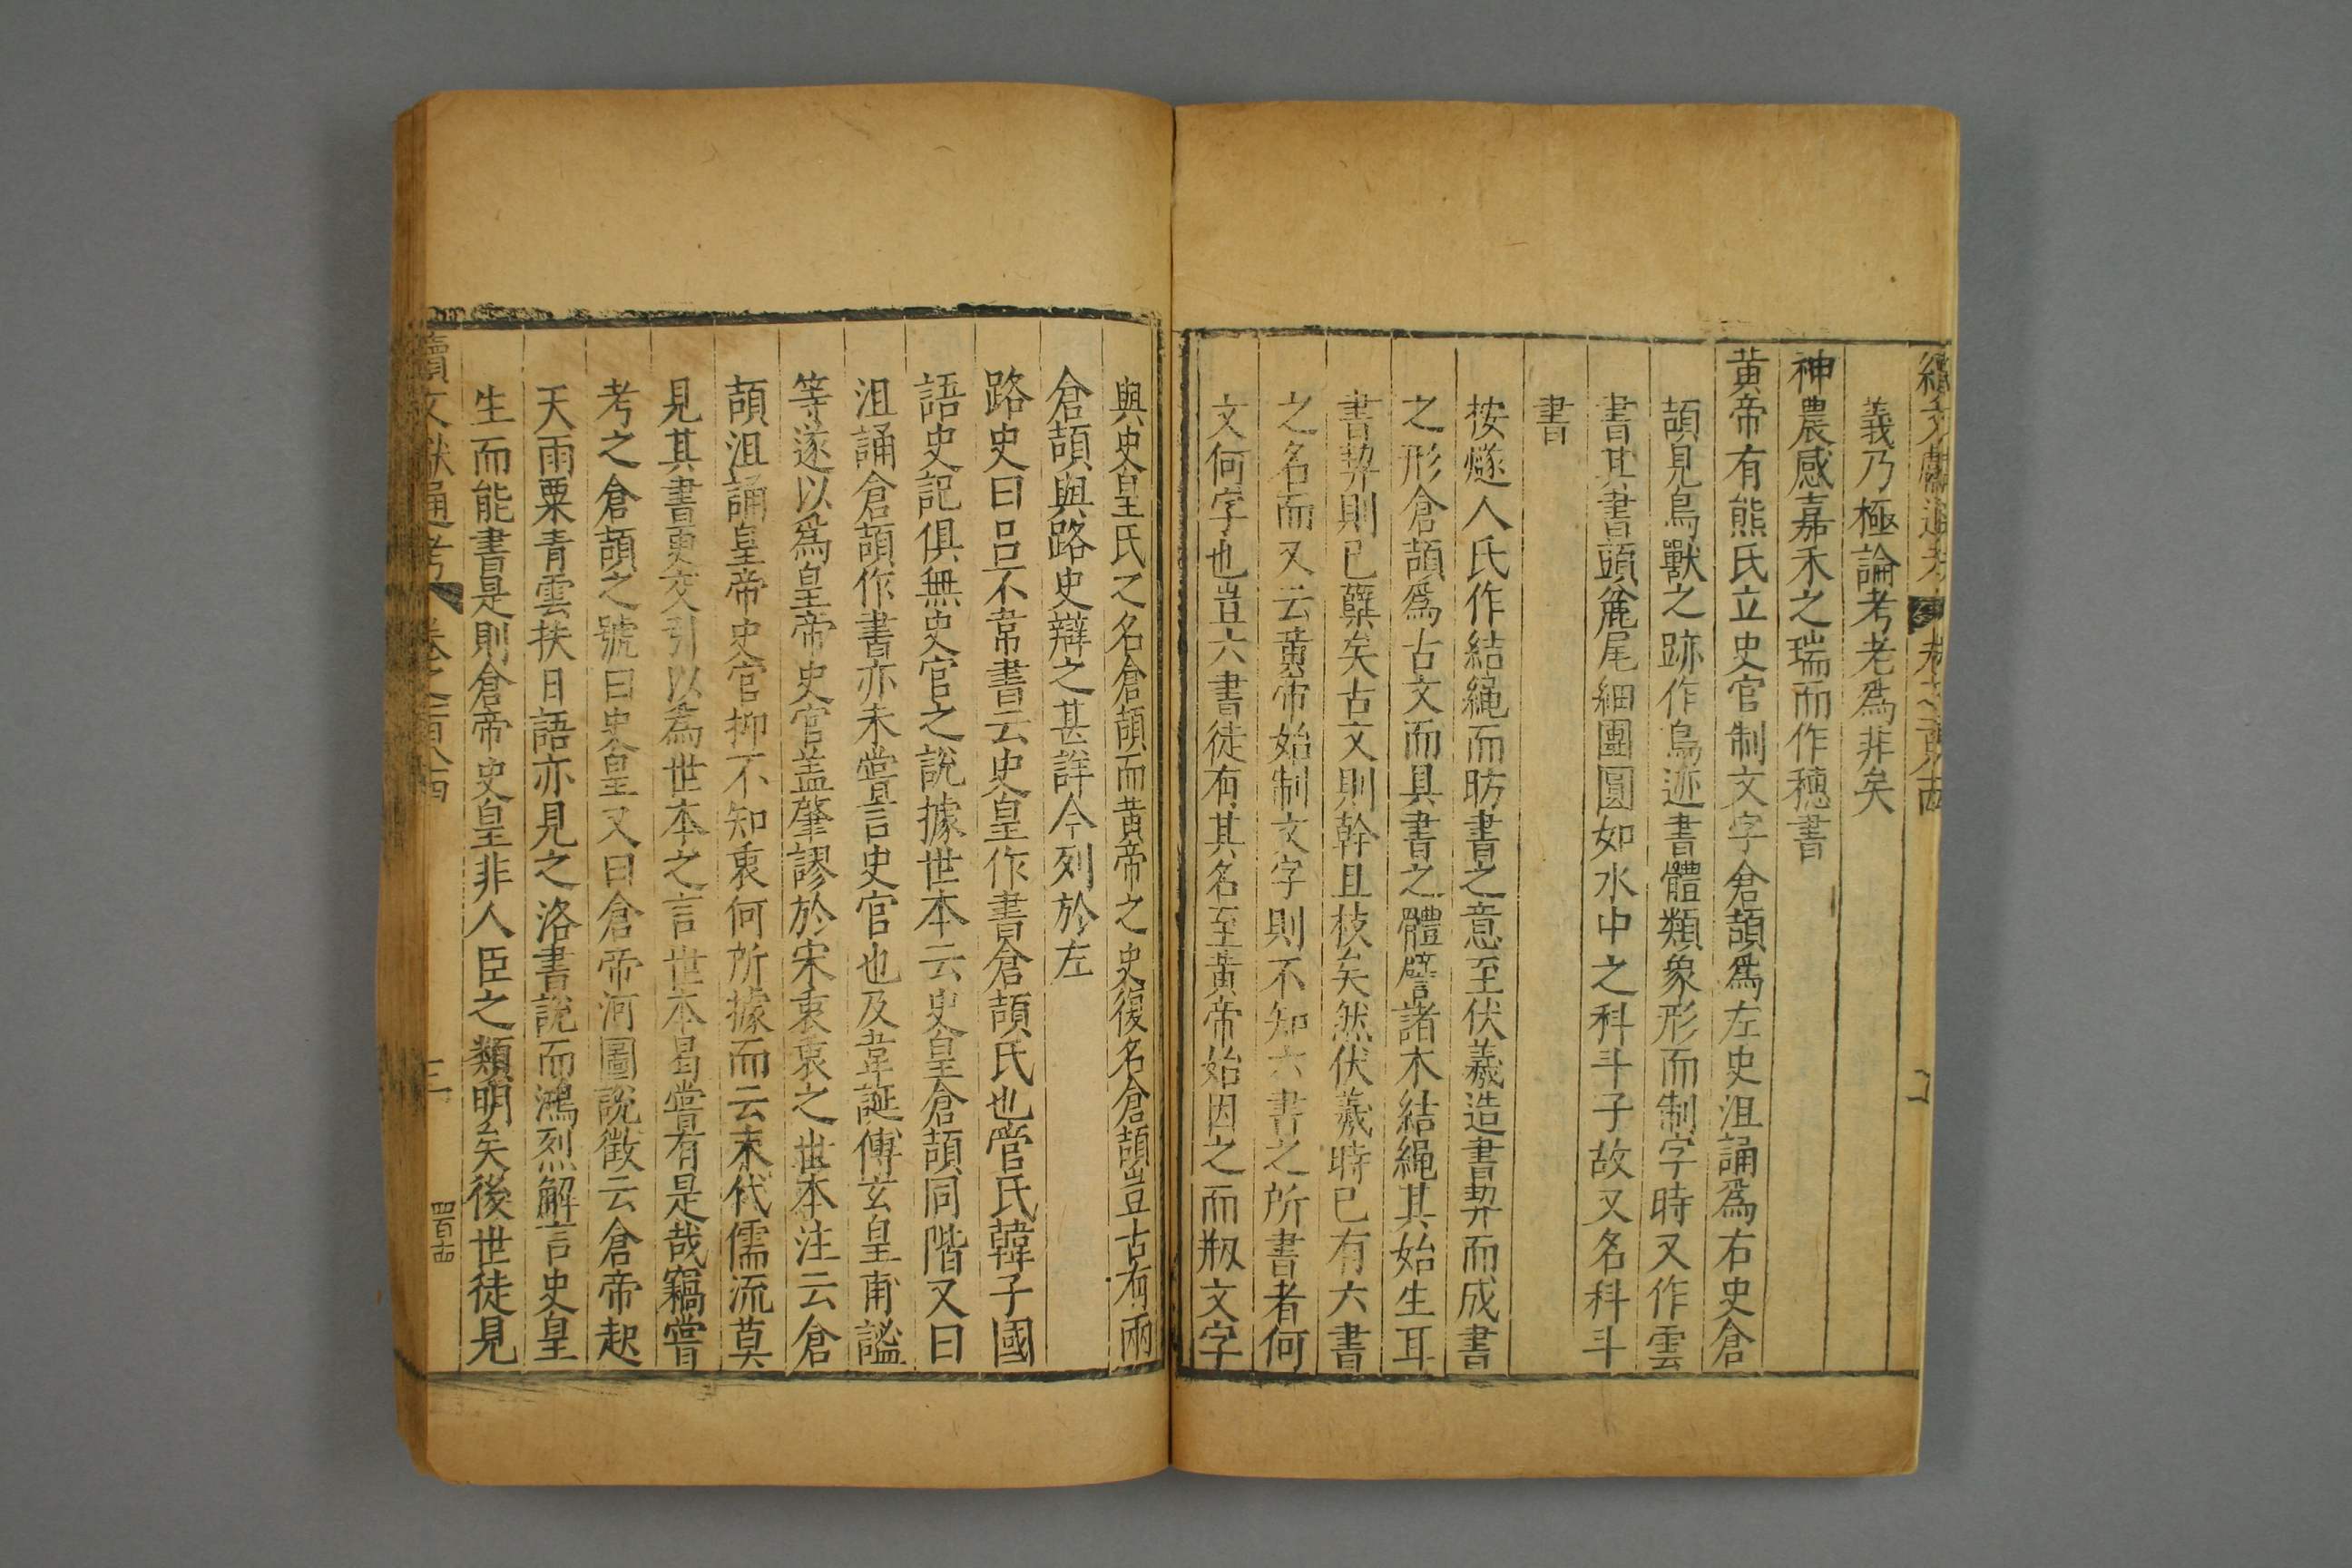 續文獻通考 卷之一百八十四
義乃極論考老為非矣
神農感嘉禾之瑞而作穗書
黃帝有熊氏立史官制文字倉頡爲左史沮誦爲右史倉
頡見鳥獸之跡作鳥迹書體類象形而制字時又作雲
書其書頭麄尾細團圓如水中之科斗子故又名科斗
書
按燧人氏作結繩而昉書之意至伏羲造書契而成書
之形倉頡爲古文而具書之體譬諸木結繩其始生耳
書契則已蘖矣古文則幹且枝矣然伏羲時已有六書
之名而又云黃帝始制文字則不知六書之所書者何
文何字也豈六書徒有其名至黃帝始因之而剏文字
與史皇氏之名倉頡而黃帝之史復名倉頡豈古有兩
倉頡與路史辯之甚詳今列於左
路史曰呂不韋書云史皇作書倉頡氏也管氏韓子國
語史記俱無史官之說據世本云史皇倉頡同階又曰
沮誦倉頡作書亦未嘗言史官也及韋誕傅玄皇甫謐
等遂以爲皇帝史官盖肇謬於宋衷衷之世本注云倉
頡沮誦皇帝史官抑不知衷何所據而云末代儒流莫
見其書更交引以為世本之言世本曷嘗有是哉竊嘗
考之倉頡之號曰史皇又曰倉帝河圖說徵云倉帝起
天雨粟青雲扶日語亦見之洛書說而鴻烈解言史皇
生而能書是則倉帝史皇非人臣之類明矣後世徒見
續文獻通考 卷之一百八十四 三 四百十四